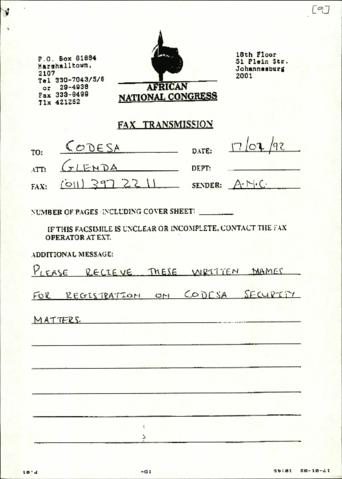 [9]
P.O. Box 61884
Marshalltown,
2107
Tel 330-7043/5/6
or 29-4938
Fax 333-9499
Tlx 421252
18th Floor
51 Plein Str.
Johannesburg
2001
AFRICAN
NATIONAL CONGRESS
FAX TRANSMISSION
TO: CODESA DATE: 17/02/92
ATT: GLENDA DEPT:
FAX: (011) 397 2211 SENDER: A.N.C.
NUMBER OF PAGES INCLUDING COVER SHEET:
IF THIS FACSIMILE IS UNCLEAR OR INCOMPLETE, CONTACT THE FAX
OPERATOR AT EXT.
ADDITIONAL MESSAGE:
PLEASE RECIEVE THESE WRITTEN NAMES
FOR REGISTRATION ON CODESA SECURITY
MATTERS.
P.01